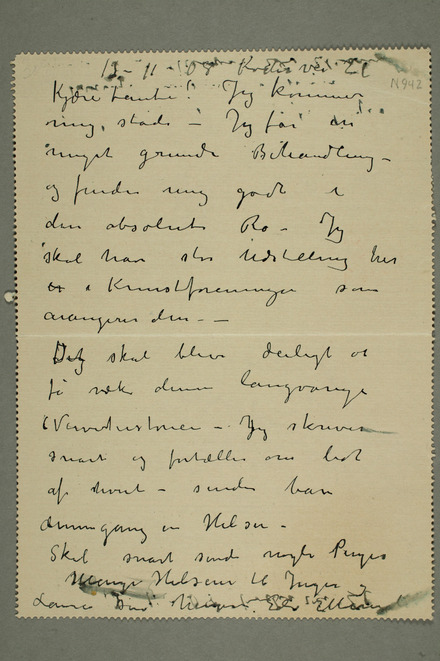 13-11-08
N942
Kjære Tante! Jeg kommer
mig, stadi – Jeg får en
meget grundi Behandling –
og finder mig godt i
den absolute Ro – Jeg
skal have stor Udstilling her
i Kunstforeningen som
arangerer den –
Det skal blive deiligt at
få væk denne langvarige
Jeg skriver
snart og fortæller om lidt
af hvert – sender bare
dennegang en Hilsen –
Skal snart sende nogle Penge
Mange Hilsener til Inger og
Laura Din